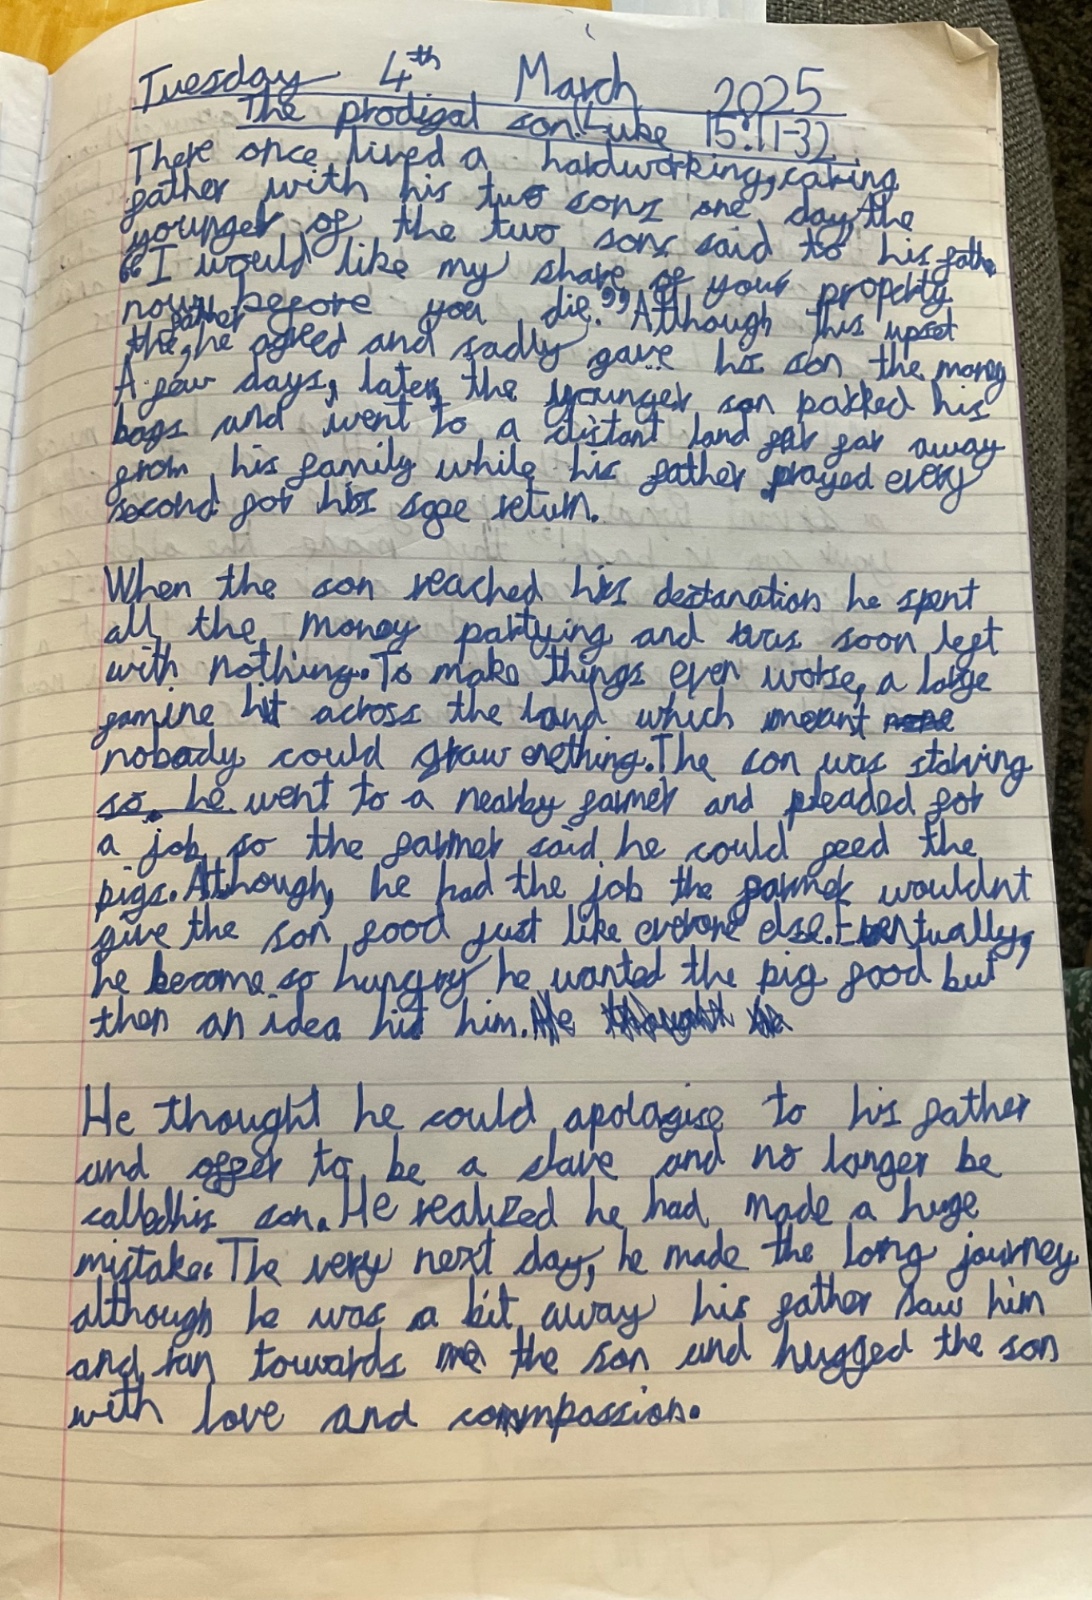 Tuesday 4th March 2025
The prodigal son: Luke 15:11-32
There once lived a hardworking, caring
father with his two sons one day, the
younger of the two sons said to his father
"I would like my share of your property
now before you die." Although this upset
the father, he agreed and sadly gave his son the money
A few days, later, the younger son packed his
bags and went to a distant land far far away
from his family while his father prayed every
second for his safe return.
When the son reached his destanation he spent
all the money partying and was soon left
with nothing. To make things even worse, a large
famine hit across the land which meant
nobody could graw enething. The son was starving
so he went to a nearby farmer and pleaded for
a job so the farmer said he could feed the
pigs. Although, he had the job the farmer wouldnt
give the son food just like everone else. Eventually,
he become so hungry he wanted the pig food but
then an idea hit him. He thought he
He thought he could apologise to his father
and offer to be a slave and no longer be
called his son. He realized he had made a huge
mistake. The very next day, he made the long journey
although he was a bit away his father saw him
and ran towards the son and hugged the son
with love and commpassion.